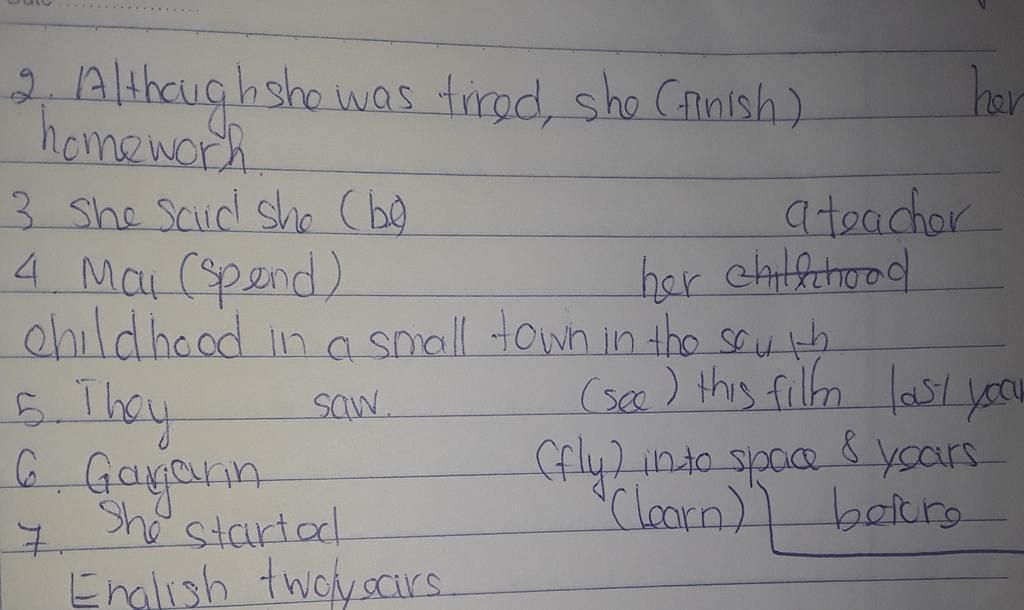 2. Although she was tired, she (finish) her
homework.
3 She said she (be) a teacher
4 Mai (spend) her childhood
childhood in a small town in the south
5. They saw. (see) this film last year
6. Gagarin (fly) into space 8 years
before
7. She started (learn)
English two years.